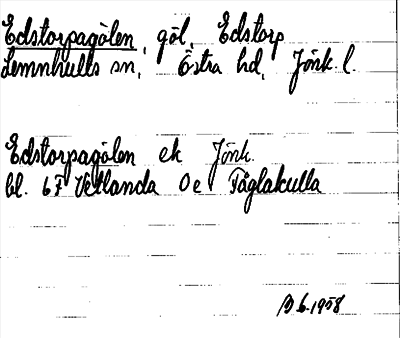 Edstorpagölen, göl, Edstorp
Lemnhults sn, Östra hd, Jönk. l.
Edstorpagölen ek Jönk.
bl. 6F Vetlanda 0e Fåglakulla
6.1958